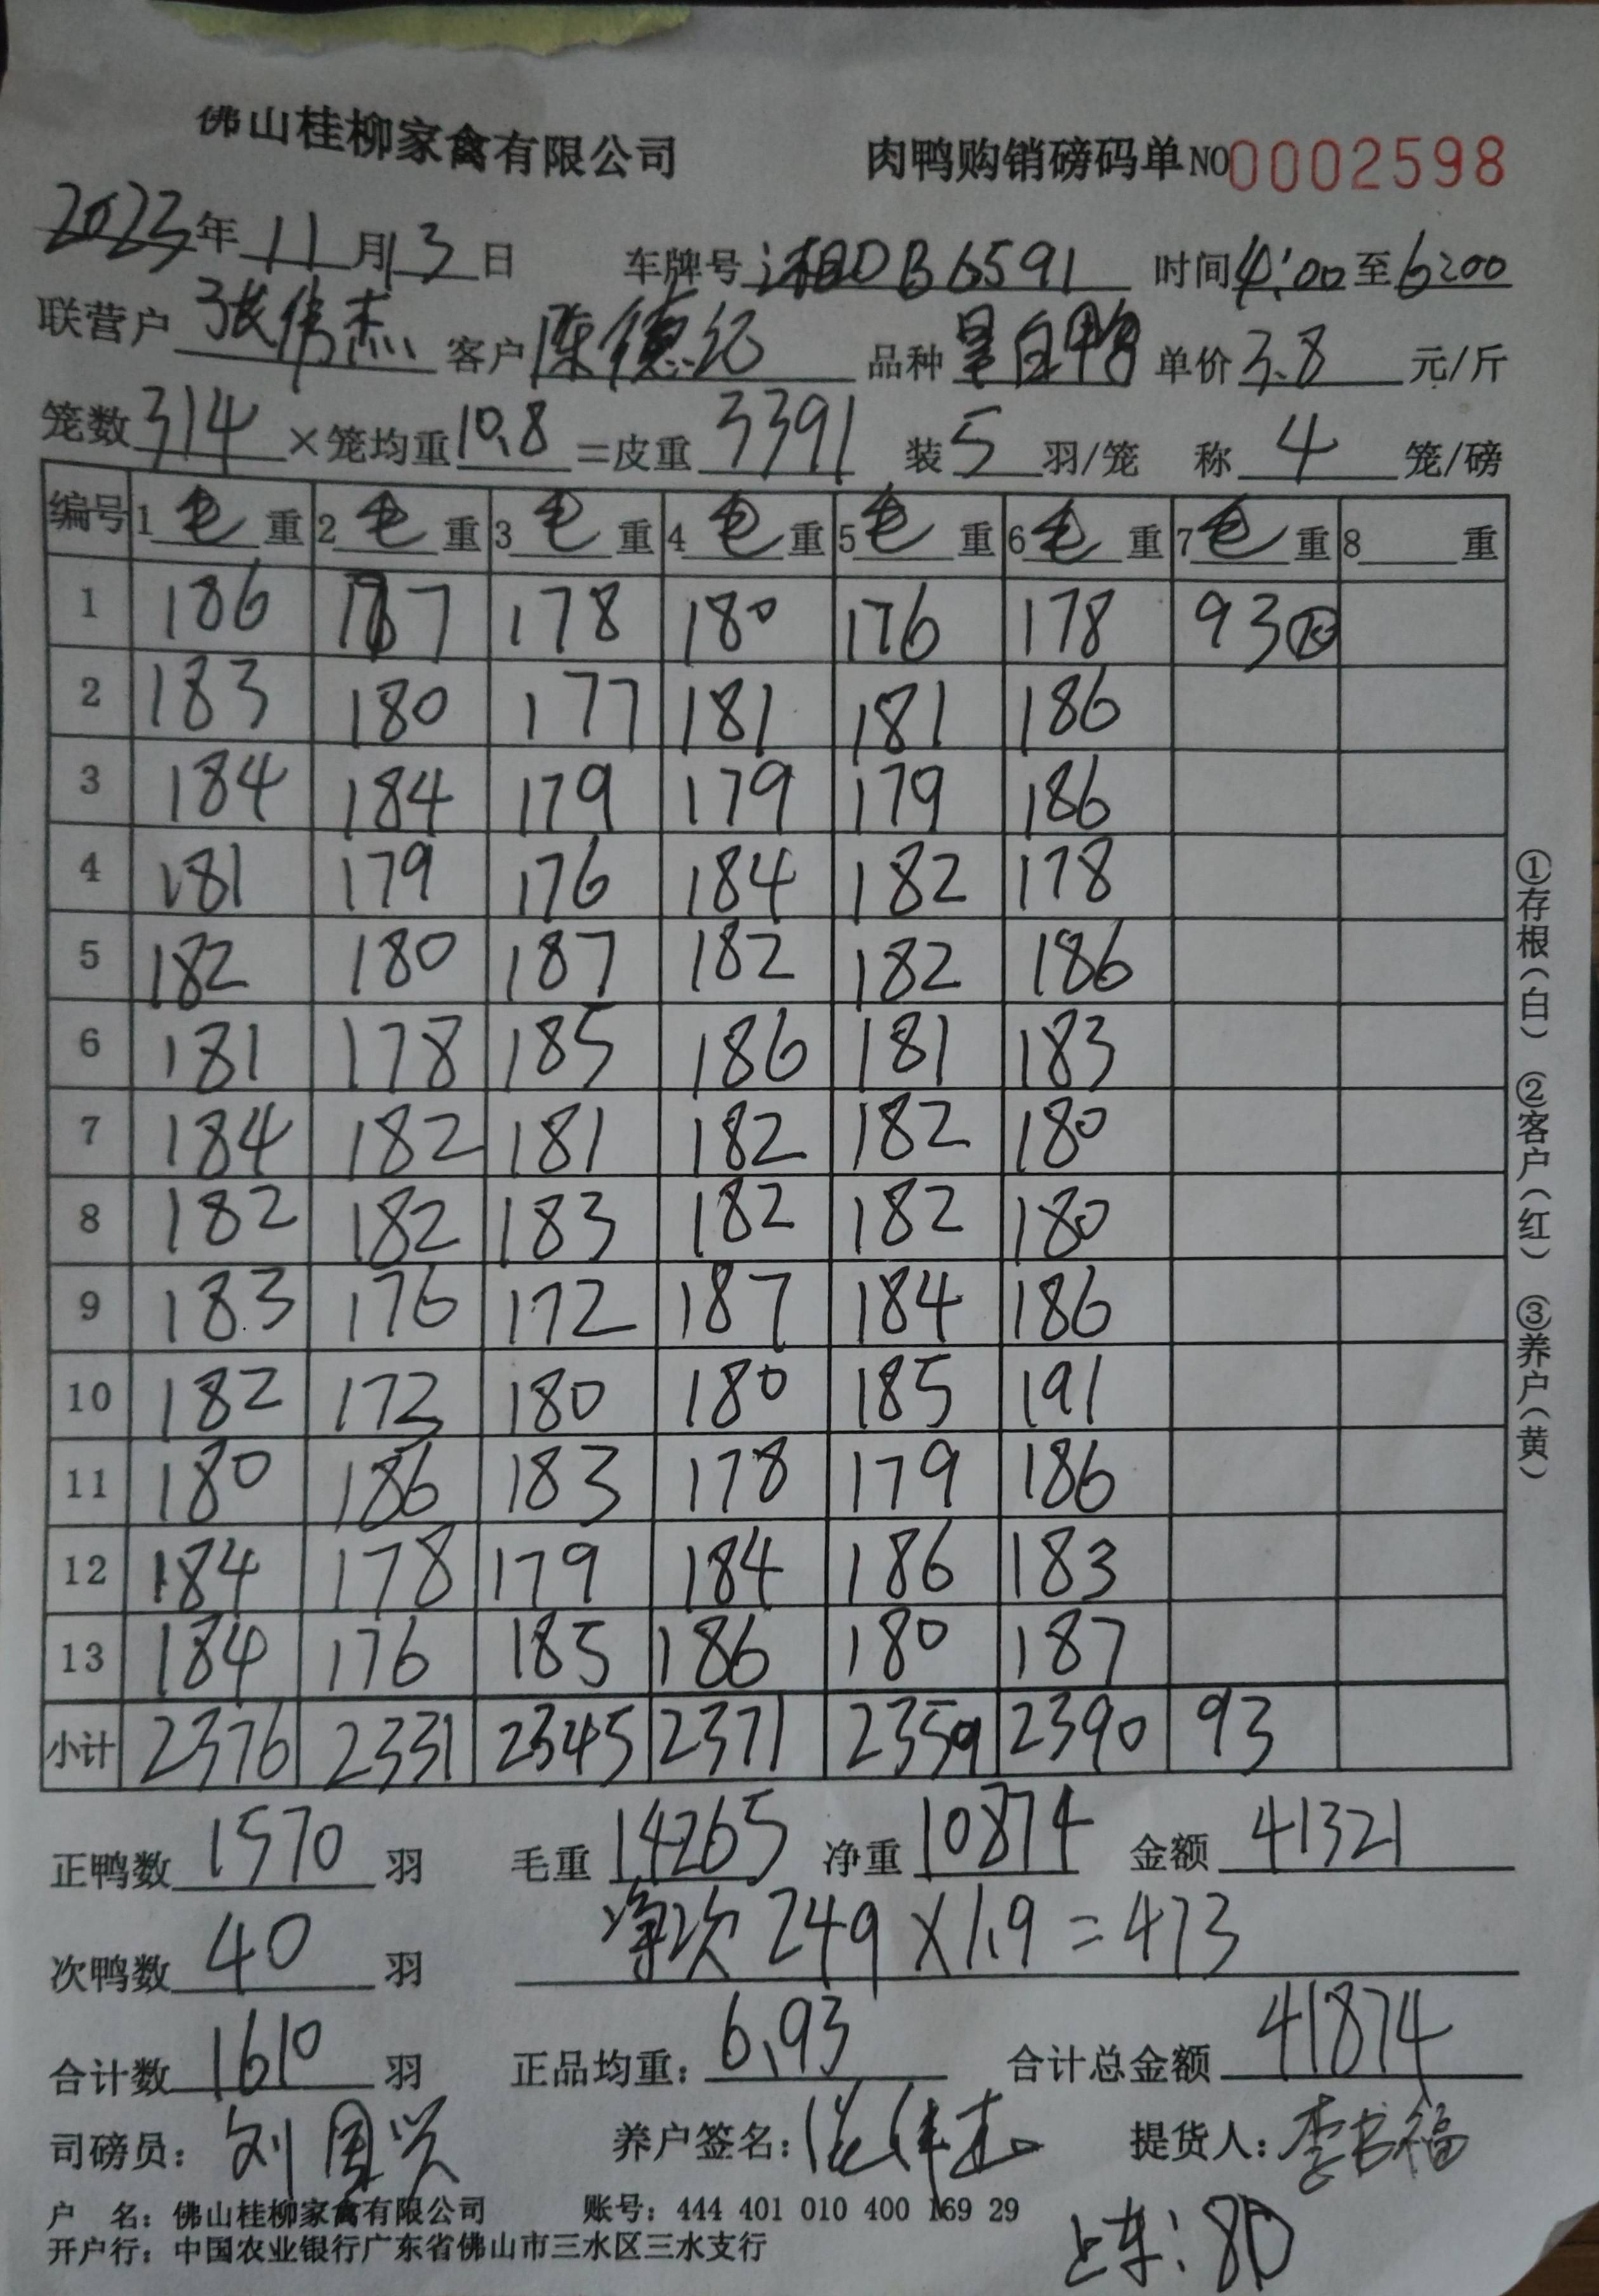 佛山桂柳家禽有限公司 肉鸭购销磅码单 NO 0002598
2023年 11月 13日 车牌号 湘DB6591 时间 4:00 至 6:00
联营户 张伟杰 客户 陈德纪 品种 白鸭 单价 3.8 元/斤
笼数 314 ×笼均重 10.8 =皮重 3391 装 5 羽/笼 称 4 笼/磅
编号 1 毛 重 2 毛 重 3 毛 重 4 毛 重 5 毛 重 6 毛 重 7 毛 重 8 重
1 186 187 178 180 176 178 93
2 183 180 177 181 181 186
3 184 184 179 179 179 186
4 181 179 176 184 182 178
5 182 180 187 182 182 186
6 181 178 185 186 181 183
7 184 182 181 182 182 180
8 182 182 183 182 182 180
9 183 176 172 187 184 186
10 182 173 180 180 185 191
11 180 186 183 178 179 186
12 184 178 179 184 186 183
13 184 176 185 186 180 187
小计 2376 2331 2345 2371 2359 2390 93
正鸭数 1570 羽 毛重 14265 净重 10874 金额 41321
次鸭数 40 羽 净次 249×1.9=473
合计数 1610 羽 正品均重: 6.93 合计总金额 41874
司磅员: 刘国兴 养户签名: 张伟杰 提货人: 李书福
户 名: 佛山桂柳家禽有限公司 账号: 444 401 010 400 169 29
开户行: 中国农业银行广东省佛山市三水区三水支行 上车: 80
①存根(白) ②客户(红) ③养户(黄)